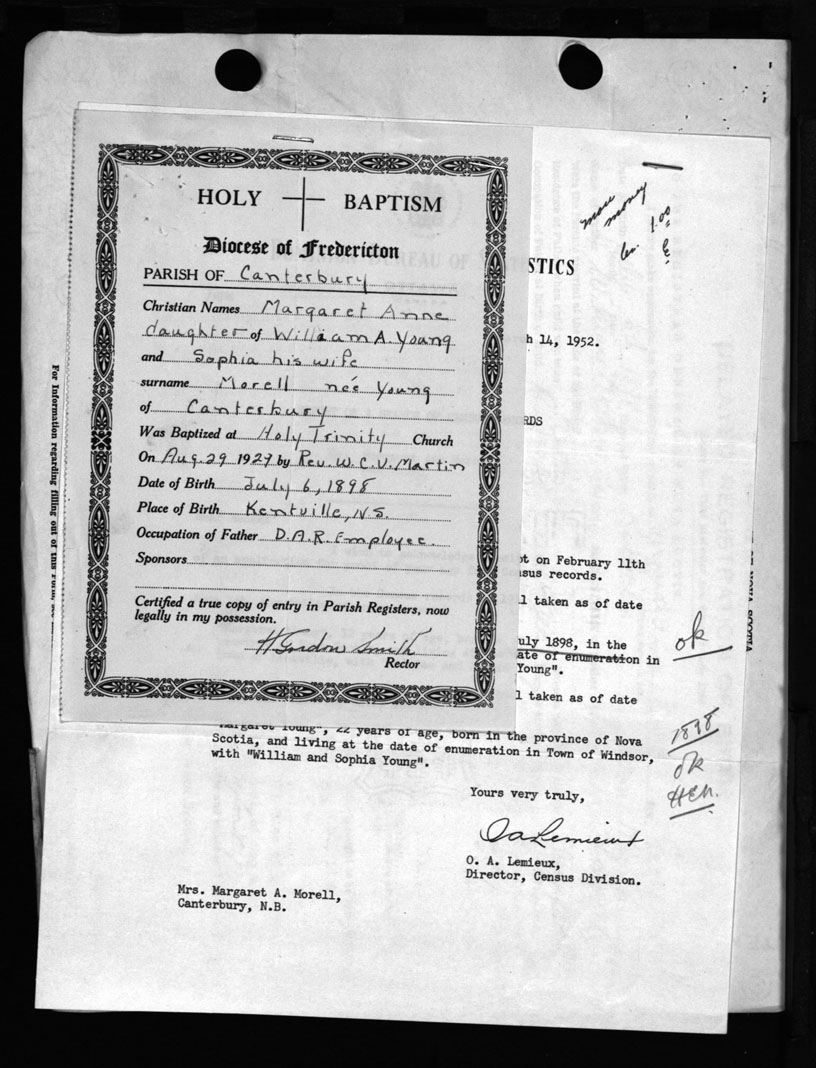 HOLY BAPTISM
Diocese of Fredericton
PARISH OF Canterbury
Christian Names Margaret Anne
daughter of William A. Young
and Sophia his wife
surname Morell neé Young
of Canterbury
Was Baptized at Holy Trinity Church
On Aug. 29 1927 by Rev. W. C. V. Martin
Date of Birth July 6, 1898
Place of Birth Kentville, N.S.
Occupation of Father D.A.R. Employee.
Sponsors
Certified a true copy of entry in Parish Registers, now
legally in my possession.
H Gordon Smith
Rector
For Information regarding filling out of this Form, see
more money
1.00
STICS
h 14, 1952.
RDS
pt on February 11th
sus records.
l taken as of date
uly 1898, in the
ate of enumeration in
Young".
ok
l taken as of date
"Margaret Young", 22 years of age, born in the province of Nova
Scotia, and living at the date of enumeration in Town of Windsor,
with "William and Sophia Young".
1898
ok
Yours very truly,
O A Lemieux
O. A. Lemieux,
Director, Census Division.
Mrs. Margaret A. Morell,
Canterbury, N.B.
OF NOVA SCOTIA